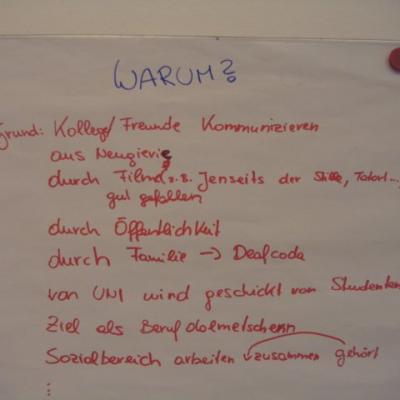 WARUM?
Grund: Kollege/Freunde Kommunizieren
aus Neugierig
durch Filme (z.B. Jenseits der Stille, Tatort...
gut gefallen
durch Öffentlichkeit
durch Familie → Deafcoda
von UNI wird geschickt von Studenten
Ziel als Berufdolmetscherin
Sozialbereich arbeiten zusammen gehört
⋮